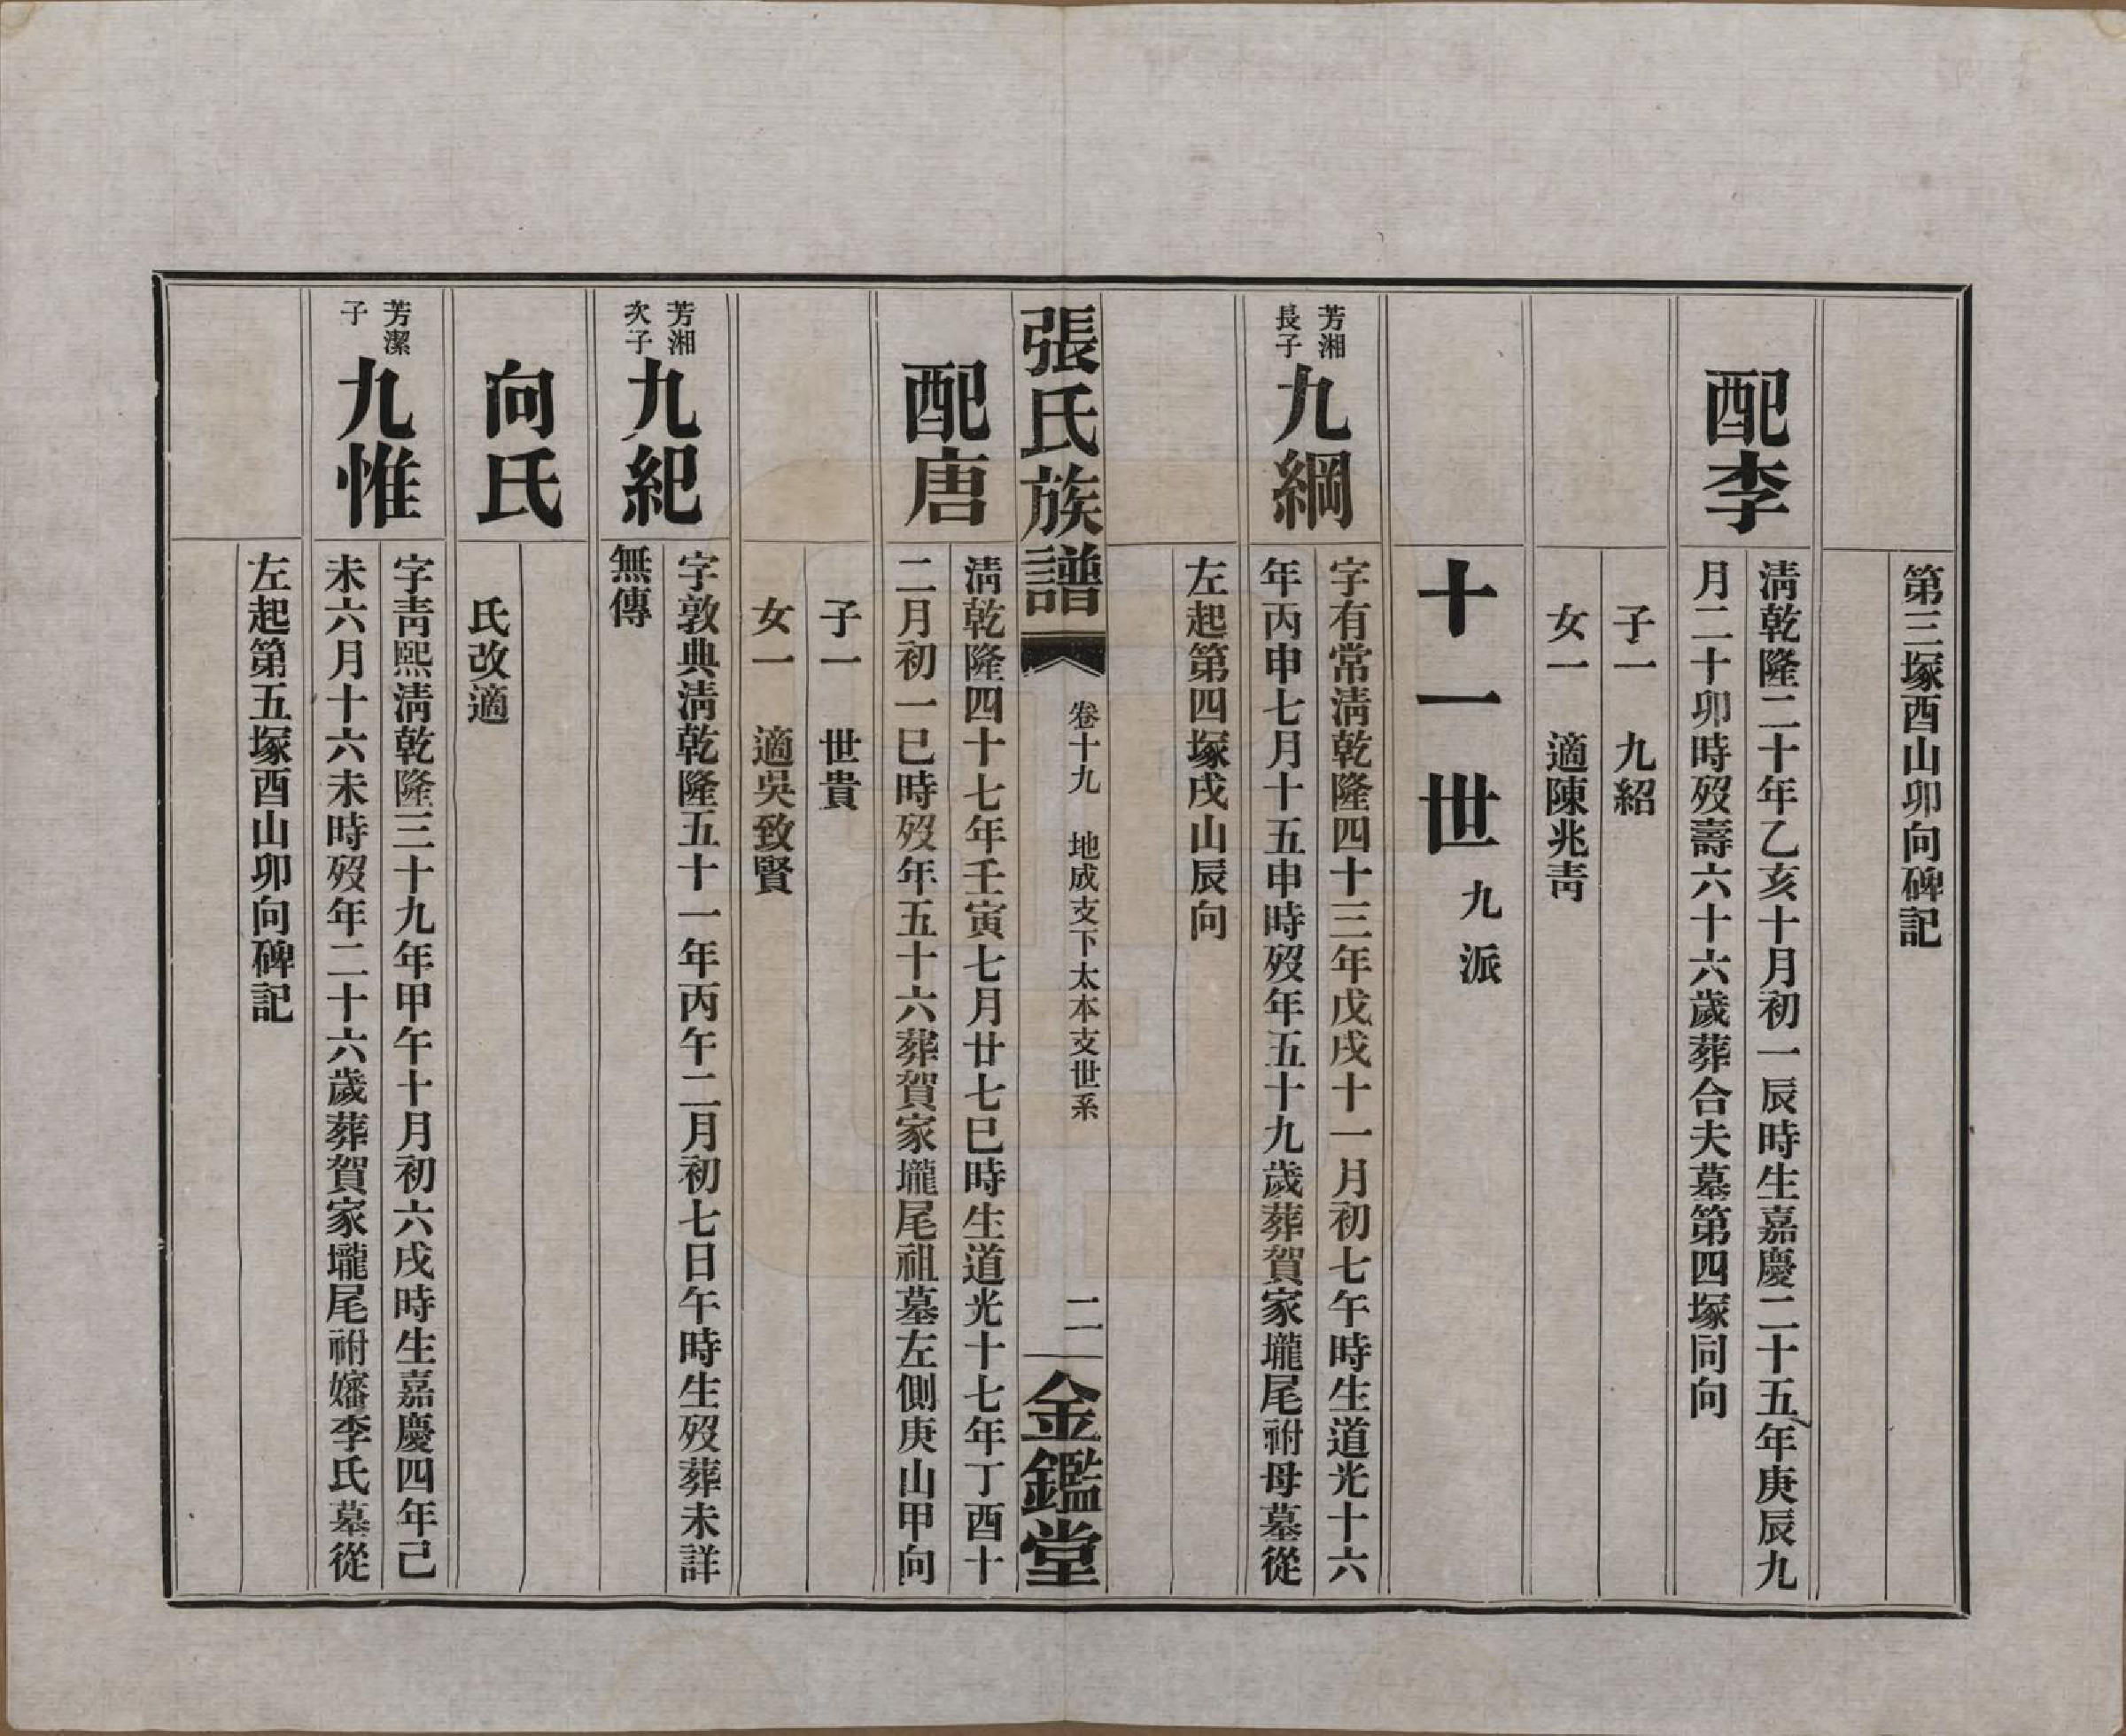 第三塚酉山卯向碑記
配李
淸乾隆二十年乙亥十月初一辰時生嘉慶二十五年庚辰九
月二十卯時歿壽六十六歲葬合夫墓第四塚同向
子一　九紹
女一　適陳兆靑
十一世　九派
芳湘
長子
九綱
字有常淸乾隆四十三年戊戌十一月初七午時生道光十六
年丙申七月十五申時歿年五十九歲葬賀家壠尾祔母墓從
左起第四塚戌山辰向
張氏族譜
卷十九　地成支下太本支世系
二
金鑑堂
配唐
淸乾隆四十七年壬寅七月廿七巳時生道光十七年丁酉十
二月初一巳時歿年五十六葬賀家壠尾祖墓左側庚山甲向
子一　世貴
女一　適吳致賢
芳湘
次子
九紀
字敦典淸乾隆五十一年丙午二月初七日午時生歿葬未詳
無傳
向氏
氏改適
芳潔
子
九惟
字靑熙淸乾隆三十九年甲午十月初六戌時生嘉慶四年己
未六月十六未時歿年二十六歲葬賀家壠尾祔嬸李氏墓從
左起第五塚酉山卯向碑記